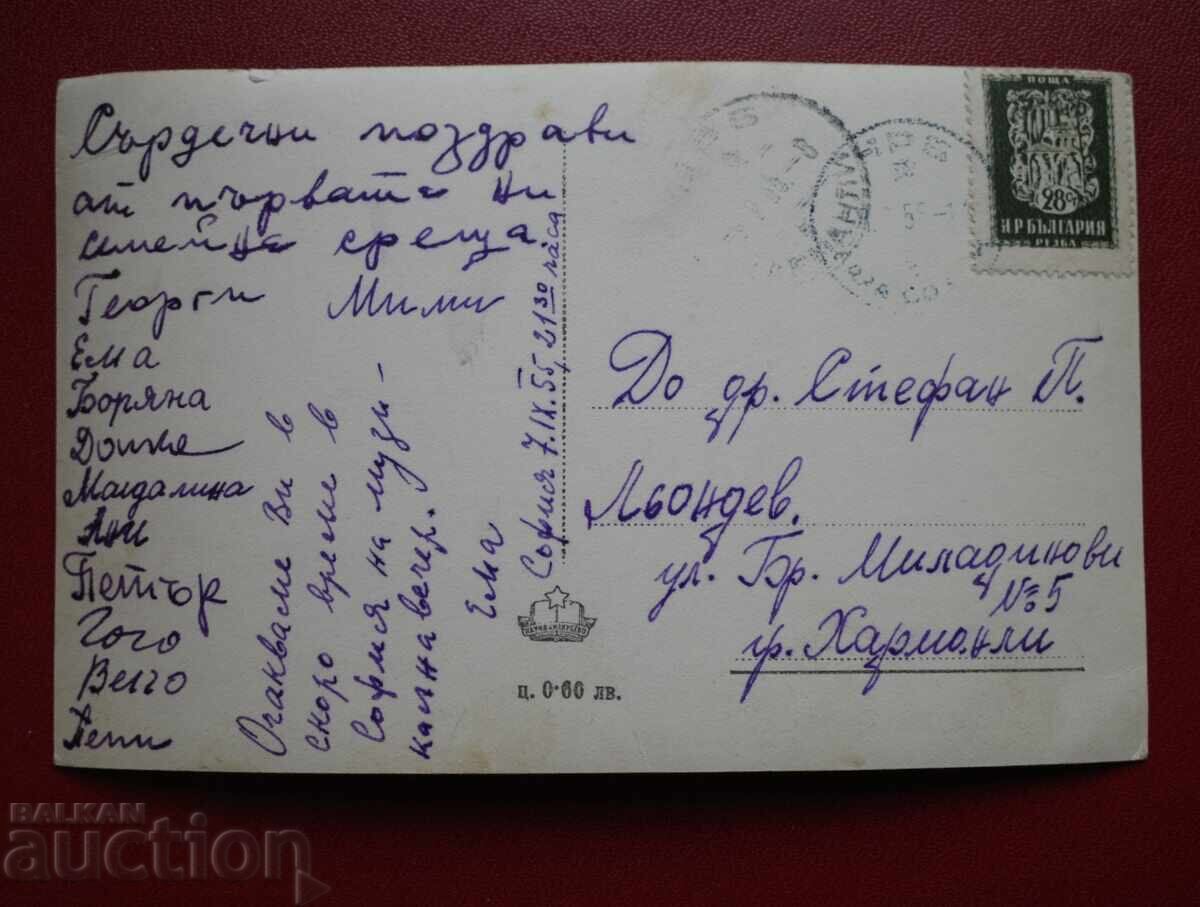 Сърдечни поздрави
от първата ни
семейна среща
Георги Мими
Ема
Боряна
Донка
Магдалина
Ани
Петър
Гого
Вего
Пепи
Очакваме Ви в
скоро време в
София на музи-
кална вечер.
Ема
София 7.IX.55, 21 30 часа
ц. 0·60 лв.
ПОЩА
28 ст
Н Р БЪЛГАРИЯ
РЕЗБА
До др. Стефан П.
Льондев.
ул. Бр. Миладинови
№ 5
гр. Харманли
BALKAN
auction